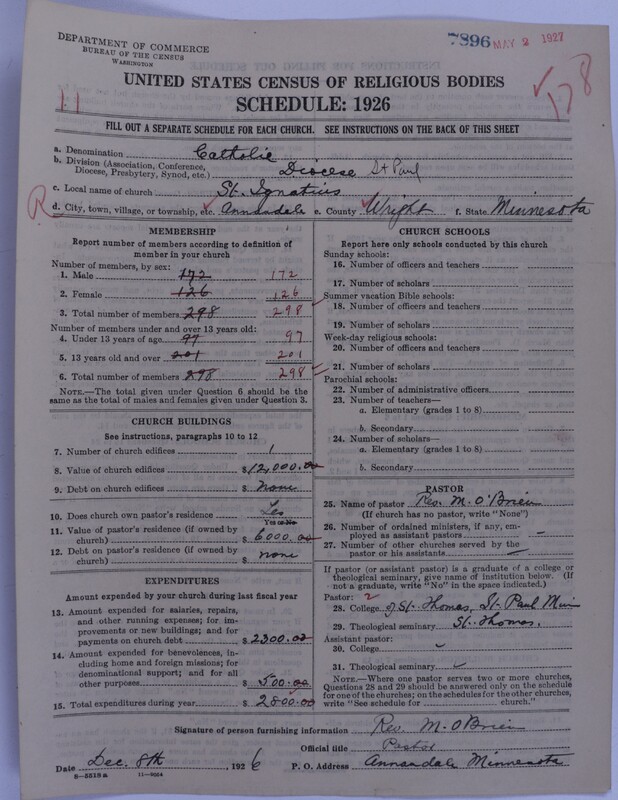 DEPARTMENT OF COMMERCE
BUREAU OF THE CENSUS
WASHINGTON
7896 MAY 2 1927
UNITED STATES CENSUS OF RELIGIOUS BODIES
SCHEDULE: 1926
11
178
FILL OUT A SEPARATE SCHEDULE FOR EACH CHURCH. SEE INSTRUCTIONS ON THE BACK OF THIS SHEET
a. Denomination Catholic
b. Division (Association, Conference, Diocese, Presbytery, Synod, etc.) Diocese St Paul
c. Local name of church St. Ignatius
R
d. City, town, village, or township, etc. Annandale e. County Wright f. State Minnesota
MEMBERSHIP
Report number of members according to definition of
member in your church
Number of members, by sex:
1. Male 172 172
2. Female 126 126
3. Total number of members 298 298
Number of members under and over 13 years old:
4. Under 13 years of age 97 97
5. 13 years old and over 201 201
6. Total number of members 298 298
NOTE.—The total given under Question 6 should be
same as the total of males and females given under Question 3.
CHURCH BUILDINGS
See instructions, paragraphs 10 to 12
7. Number of church edifices 1
8. Value of church edifices $12,000.00
9. Debt on church edifices $ none
10. Does church own pastor's residence Yes
Yes or No
11. Value of pastor's residence (if owned by
church) $ 6000.00
12. Debt on pastor's residence (if owned by
church) $ none
EXPENDITURES
Amount expended by your church during last fiscal year
13. Amount expended for salaries, repairs,
and other running expenses; for im-
provements or new buildings; and for
payments on church debt $2300.00
14. Amount expended for benevolences, in-
cluding home and foreign missions; for
denominational support; and for all
other purposes $ 500.00
15. Total expenditures during year $ 2800.00
CHURCH SCHOOLS
Report here only schools conducted by this church
Sunday schools:
16. Number of officers and teachers
17. Number of scholars
Summer vacation Bible schools:
18. Number of officers and teachers
19. Number of scholars
Week-day religious schools:
20. Number of officers and teachers
21. Number of scholars
Parochial schools:
22. Number of administrative officers
23. Number of teachers—
a. Elementary (grades 1 to 8)
b. Secondary
24. Number of scholars—
a. Elementary (grades 1 to 8)
b. Secondary
PASTOR
25. Name of pastor Rev. M. O'Brien
(If church has no pastor, write "None")
26. Number of ordained ministers, if any, em-
ployed as assistant pastors –
27. Number of other churches served by the
pastor or his assistants —
If pastor (or assistant pastor) is a graduate of a college or
theological seminary, give name of institution below. (If
not a graduate, write "No" in the space indicated.)
Pastor: 2
28. College of St. Thomas, St. Paul Minn
29. Theological seminary St. Thomas.
Assistant pastor:
30. College
31. Theological seminary
NOTE.—Where one pastor serves two or more churches,
Questions 28 and 29 should be answered only on the schedule
for one of the churches; on the schedules for the other churches,
write "See schedule for church."
Signature of person furnishing information Rev. M. O'Brien
Official title Pastor
Date Dec. 8th, 1926 P. O. Address Annandale Minnesota
8—5518a 11—9064